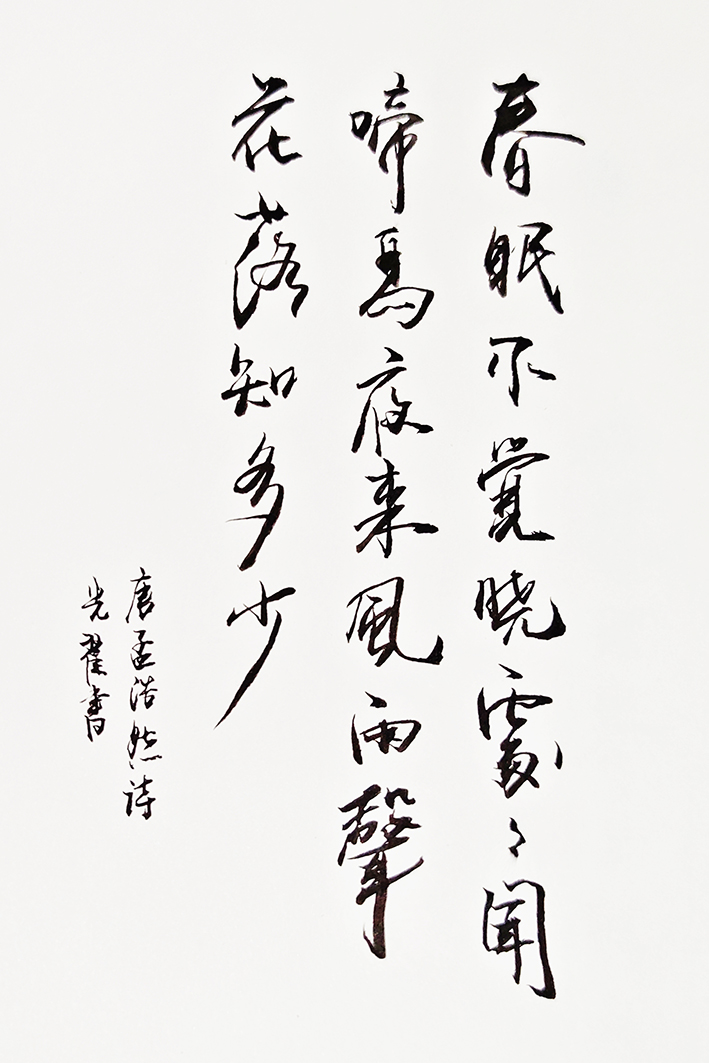 春眠不覺晓處々聞
啼鳥夜来風雨聲
花落知多少
唐孟浩然诗
光翟書